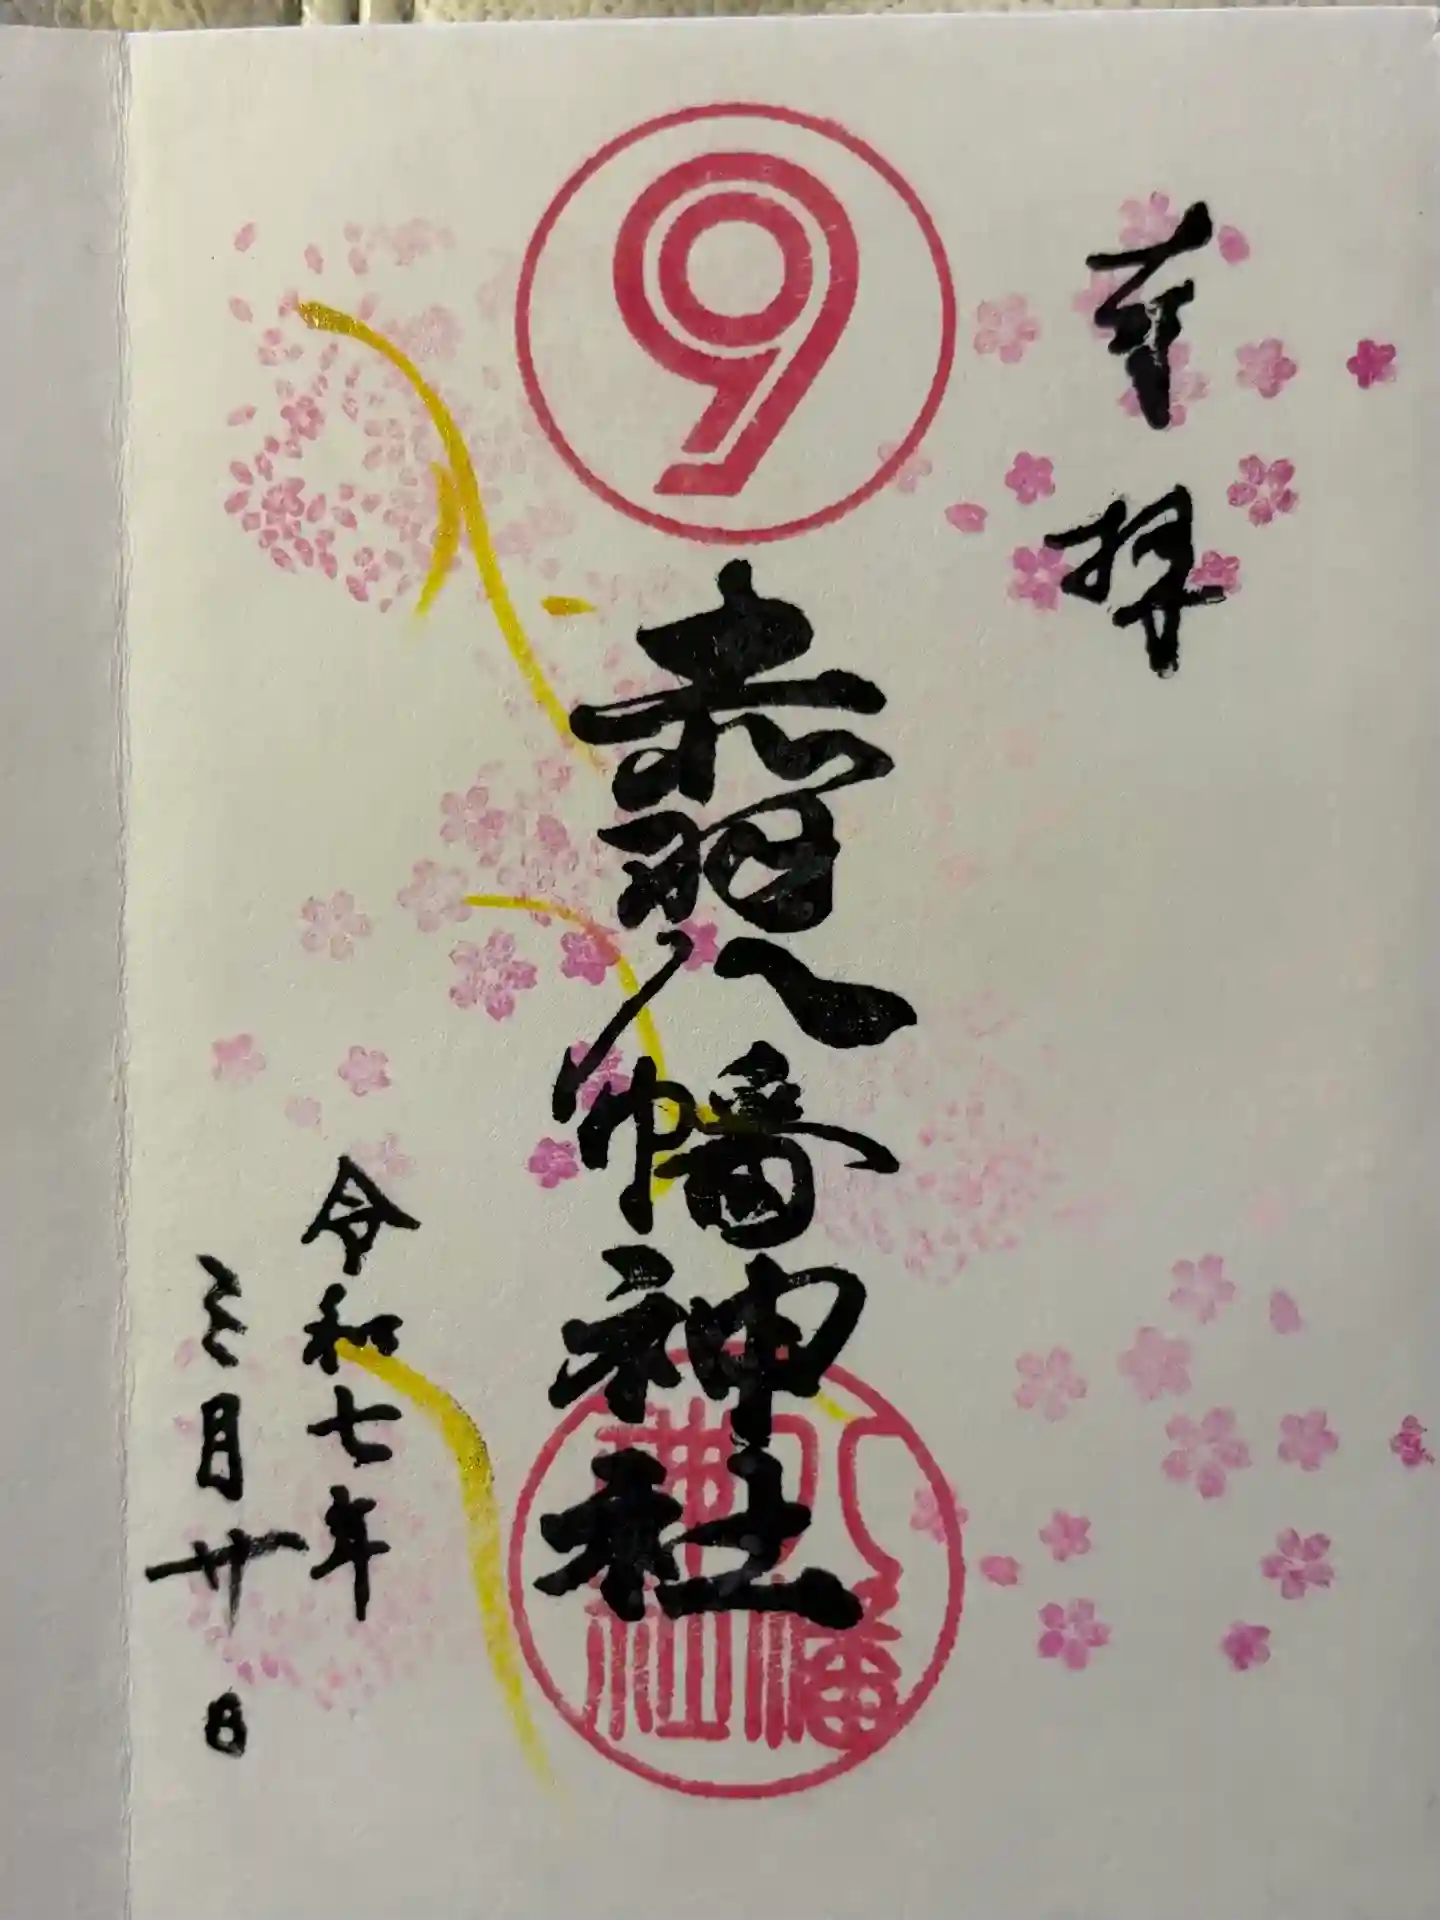 奉拝
赤羽八幡神社
令和七年
三月廿日
八幡神社